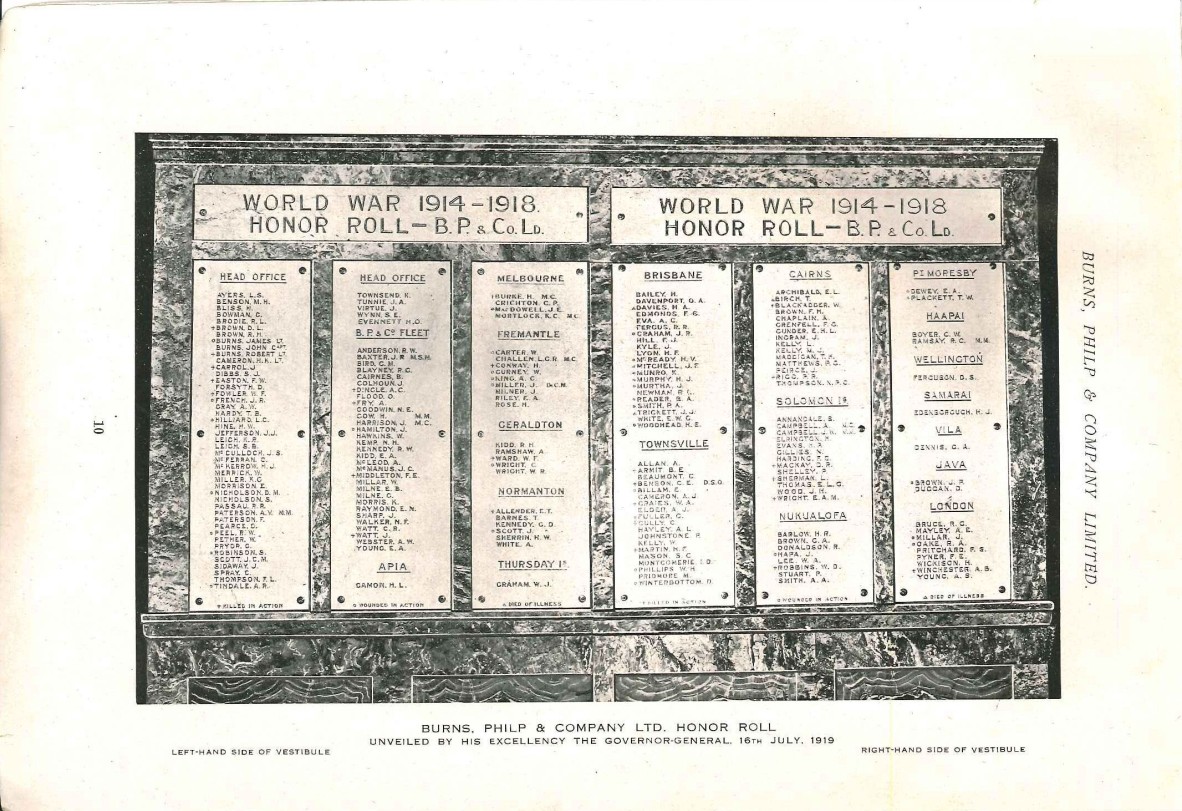 WORLD WAR 1914-1918.
HONOR ROLL-B.P. & Co. LD.
HEAD OFFICE
AYERS, L.S.
BENSON, M.H.
BLISS, H.
BOWMAN, C.
BRODIE, R.L.
BROWN, D.L.
BROWN, R.H.
BURNS, JAMES LT.
BURNS, JOHN CAPT.
BURNS, ROBERT LT.
CAMERON, H.K. LT.
CARROL, J.
DIBBS, S.J.
EASTON, F.W.
FORSYTH, D.
FOWLER, W.F.
FRENCH, J.R.
GRAY, A.W.
HARDY, T.B.
HILLIARD, L.C.
HINE, H.W.
JEFFERSON, J.J.
LEIGH, K.R.
LEIGH, S.B.
McCULLOCH, J.S.
McFERRAN, C.
McKERROW, H.J.
MERRICK, W.
MILLER, R.G.
MORRISON, E.
NICHOLSON, D.M.
NICHOLSON, S.
PASSAU, R.R.
PATERSON, A.Y. M.M.
PATERSON, F.
PEARCE, G.
PEEL, R.W.
PETHER, W.
PRYOR, G.
ROBINSON, S.
SCOTT, J.C.M.
SIDAWAY, J.
SPRAY, C.
THOMPSON, F.L.
TINDALE, A.R.
+ KILLED IN ACTION
HEAD OFFICE
TOWNSEND, K.
TUNNIE, J.A.
VIRTUE, J.
WYNN, S.E.
EVENNETT, H.O.
B.P. & Co's FLEET
ANDERSON, R.W.
BAXTER, J.R. M.S.M.
BIRD, C.H.
BLAYNEY, R.G.
CAIRNES, B.
COLHOUN, J.
DINGLE, A.C.
FLOOD, O.
FRY, A.
GOODWIN, N.E.
GOW, H. M.M.
HARRISON, J. M.C.
HAMILTON, J.
HAWKINS, W.
KEMP, N.H.
KENNEDY, R.W.
KIDD, E.A.
McLEOD, A.
McMANUS, J.C.
MIDDLETON, F.E.
MILLAR, W.
MILNE, E.B.
MILNE, G.
MORRIS, K.
RAYMOND, E.N.
SHARP, J.
WALKER, N.F.
WATT, C.R.
WATT, J.
WEBSTER, A.W.
YOUNG, E.A.
APIA
GAMON, H.L.
WOUNDED IN ACTION
MELBOURNE
BURKE, H. M.C.
CRICHTON, C.P.
MacDOWELL, J.E.
MORTLOCK, K.C. M.C.
FREMANTLE
CARTER, W.
CHALLEN, L.G.R. M.C.
CONWAY, H.
GURNEY, W.
KING, A.C.
MILLER, J. D.C.M.
MILNER, J.
RILEY, E.A.
ROSE, H.
GERALDTON
KIDD, R.H.
RAMSHAW, A.
WARD, W.F.
WRIGHT, C.
WRIGHT, W.R.
NORMANTON
ALLENDER, E.T.
BARNES, T.
KENNEDY, G.D.
SCOTT, J.
SHERRIN, H.W.
WHITE, A.
THURSDAY Is.
GRAHAM, W.J.
DIED OF ILLNESS
WORLD WAR 1914-1918
HONOR ROLL-B.P. & Co. LD.
BRISBANE
BAILEY, H.
DAVENPORT, O.A.
DAVIES, H.A.
EDMONDS, F.G.
EVA, A.C.
FERGUS, R.R.
GRAHAM, J.R.
HILL, F.J.
KYLE, J.
LYON, H.F.
McREADY, H.V.
MITCHELL, J.F.
MUNRO, E.
MURPHY, H.J.
MURTHA, J.
NEWMAN, R.G.
READER, B.A.
SMITH, P.A.
TRICKETT, J.J.
WHITE, E.W.G.
WOODHEAD, H.E.
TOWNSVILLE
ALLAN, A.
ARMIT, B.E.
BEAUMONT, C.
BENSON, C.E. D.S.O.
BILLAM, E.
CAMERON, A.J.
CULLY, C.
HAYLEY, A.L.
JOHNSTONE, P.
KELLY, W.
MARTIN, H.F.
MASON, S.C.
MONTGOMERIE, I.D.
PHILLIPS, W.H.
PRIDMORE, M.
WINTERBOTTOM, D.
KILLED IN ACTION
CAIRNS
ARCHIBALD, E.L.
BIRCH, T.
BLACKADDER, W.
BROWN, F.H.
CHAPLAIN, A.
GRENFELL, F.G.
GUNDER, E.H.L.
INGRAM, J.
KELLY, L.
KELLY, M.J.
MADDIGAN, T.H.
MATTHEWS, P.C.
PEIRCE, J.
RIGG, P.R.
THOMPSON, N.P.C.
SOLOMON Is.
ANNANDALE, S.
CAMPBELL, A. M.C.
ELRINGTON, H.
EVANS, H.R.
GILLIES, N.
HARDING, F.G.
MACKAY, D.R.
SHELLEY, P.
SHERMAN, L.
THOMAS, S.L.G.
WOOD, J.H.
WRIGHT, E.A.M.
NUKUALOFA
BARLOW, H.R.
BROWN, C.A.
DONALDSON, R.
HAPA, J.
LEE, W.A.
ROBBINS, W.D.
STUART, P.
SMITH, A.A.
WOUNDED IN ACTION
Pt. MORESBY
DEWEY, E.A.
PLACKETT, T.W.
HAAPAI
BOYER, C.W.
RAMSAY, R.C. M.M.
WELLINGTON
FERGUSON, D.S.
SAMARAI
EDENSBOROUGH, H.J.
VILA
DENNIS, G.A.
JAVA
BROWN, J.P.
DUGGAN, D.
LONDON
BRUCE, R.C.
MAYLEY, A.E.
MILLAR, J.
OAKE, R.A.
PRITCHARD, F.S.
PYNER, F.E.
WICKISON, H.
WINCHESTER, A.B.
YOUNG, A.S.
DIED OF ILLNESS
BURNS, PHILP & COMPANY LTD. HONOR ROLL
UNVEILED BY HIS EXCELLENCY THE GOVERNOR-GENERAL, 16TH JULY, 1919
LEFT-HAND SIDE OF VESTIBULE
RIGHT-HAND SIDE OF VESTIBULE
10
BURNS, PHILP & COMPANY LIMITED.